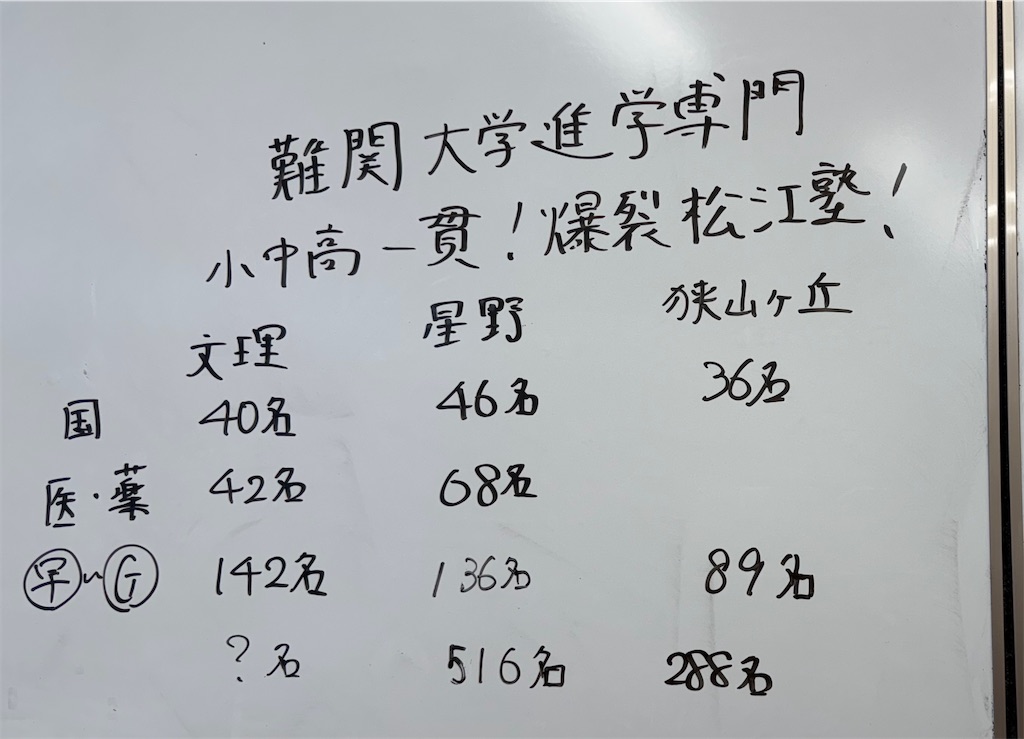 難関大学進学専門
小中高一貫!爆裂松江塾!
文理 星野 狭山ヶ丘
国 40名 46名 36名
医・薬 42名 68名
早~G 142名 136名 89名
?名 516名 288名